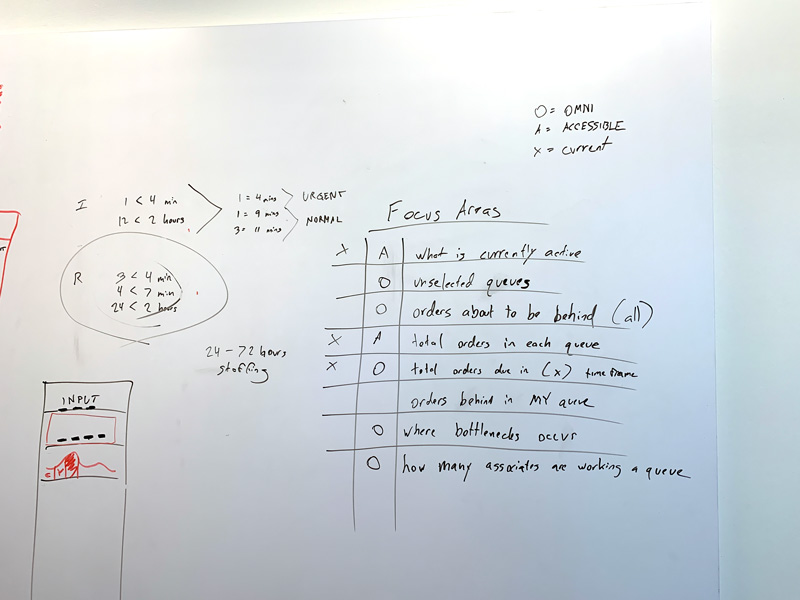 O = OMNI
A = ACCESSIBLE
X = current
I
1 < 4 min
12 < 2 hours
1 = 4 mins
1 = 9 mins
3 = 11 mins
URGENT
NORMAL
R
3 < 4 min
4 < 7 min
24 < 2 hours
24 - 72 hours
staffing
INPUT
Focus Areas
X A what is currently active
O unselected queues
O orders about to be behind (all)
X A total orders in each queue
X O total orders due in (x) timeframe
orders behind in MY queue
O where bottlenecks occur
O how many associates are working a queue